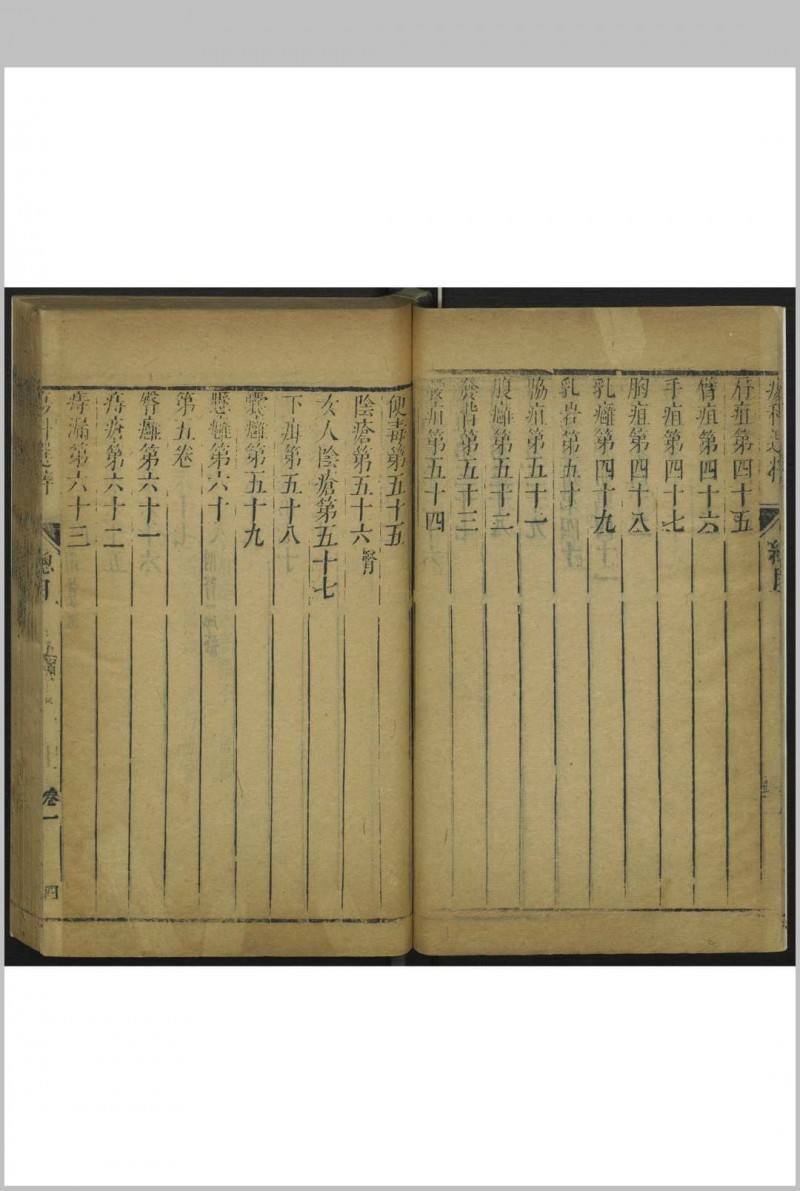 疽第四十五
臂疽第四十六
手疽第四十七
胸疽第四十八
乳癰第四十九
乳岩第五十
脇疽第五十一
腹癰第五十二
第五十三
疽第五十四
便毒第五十五
陰瘡第五十六
女人陰瘡第五十七
下疳第五十八
囊癰第五十九
懸癰第六十
第五卷
臀癰第六十一
痔瘡第六十二
痔漏第六十三
瘍科選粹
總目
卷一
四